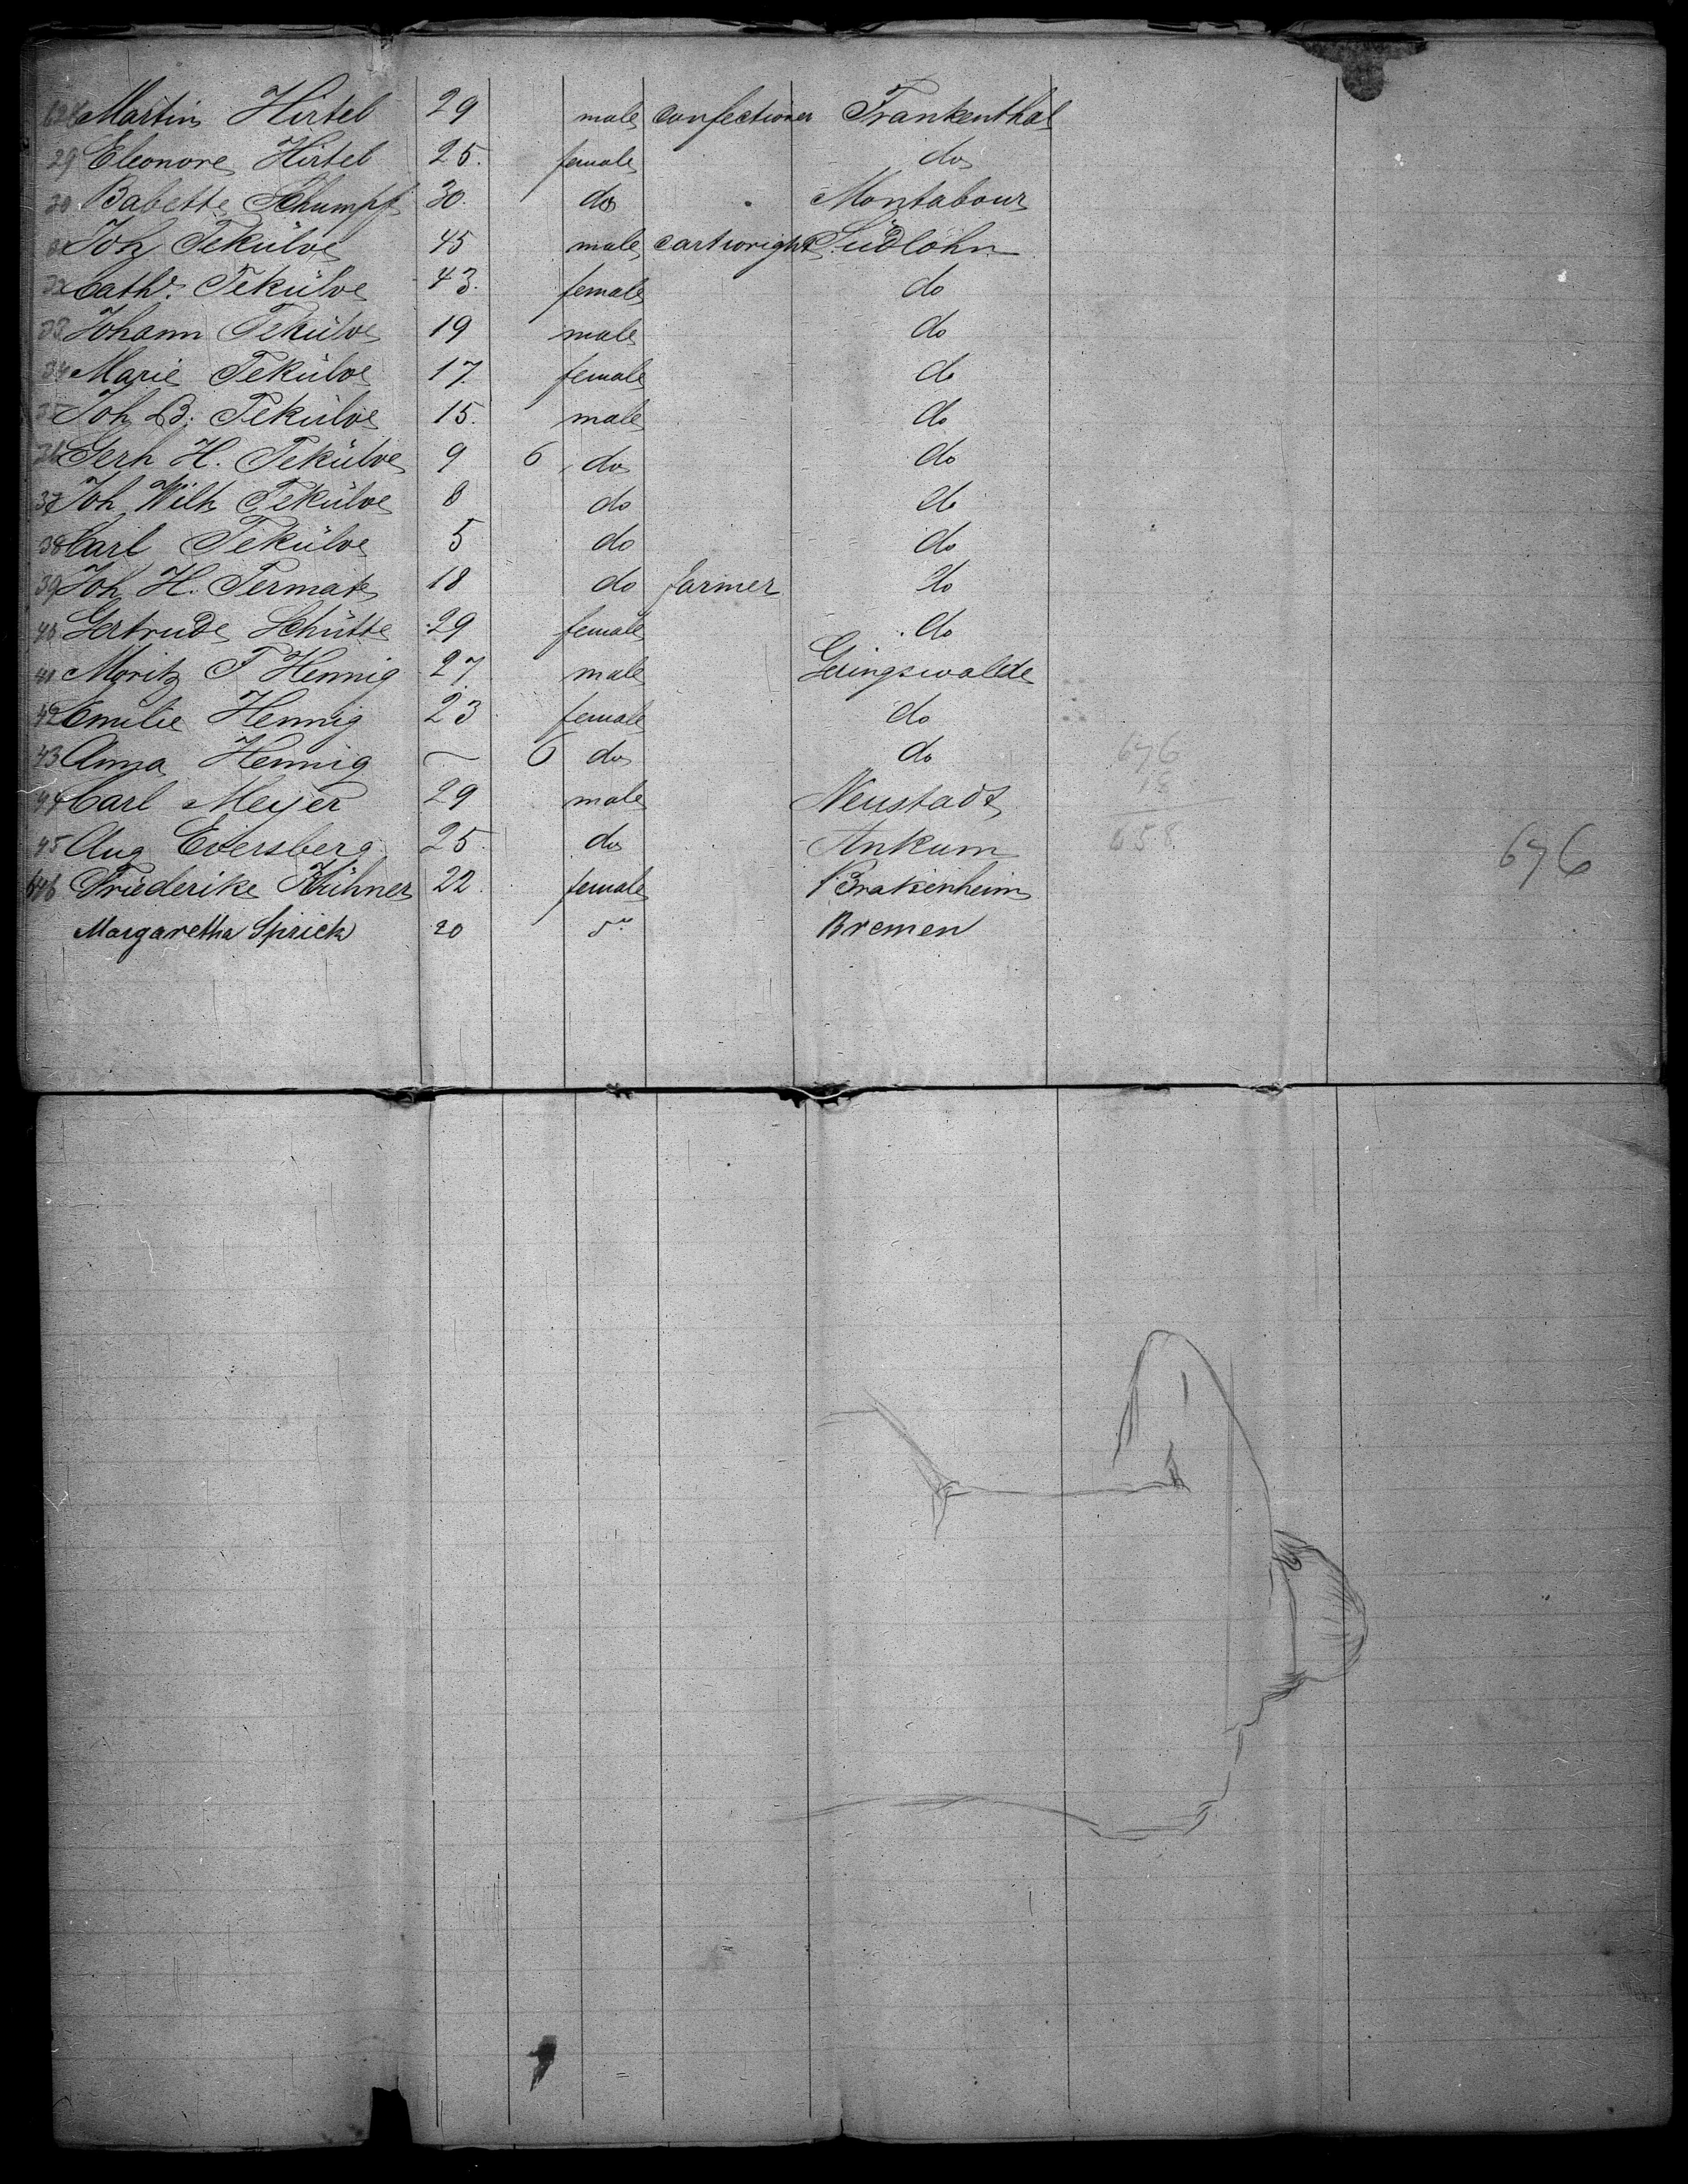 628 Martin Hirtel 29 male confectioner Frankenthal
29 Eleonore Hirtel 25. female do
30 Babette Schumpf 30. do Montabour
31 Joh Tekülve 45 male cartwright Südlohn
32 Cath. Tekülve 43. female do
33 Johann Tekülve 19 male do
34 Marie Tekülve 17. female do
35 Joh B. Tekülve 15. male do
36 Gerh H. Tekülve 9 6 do do
37 Joh Wilh Tekülve 8 do do
38 Carl Tekülve 5 do do
39 Joh H. Termate 18 do farmer do
40 Gertrude Schütte 29 female do
41 Moritz F Hennig 27 male Geringswalde
42 Emilie Hennig 23 female do
43 Anna Hennig — 6 do do
44 Carl Meyer 29 male Neustadt
45 Aug Eversberg 25. do Ankum
646 Friederike Hühner 22. female Brakenheim
Margaretha Sprick 20 do Bremen
676
18
658
676